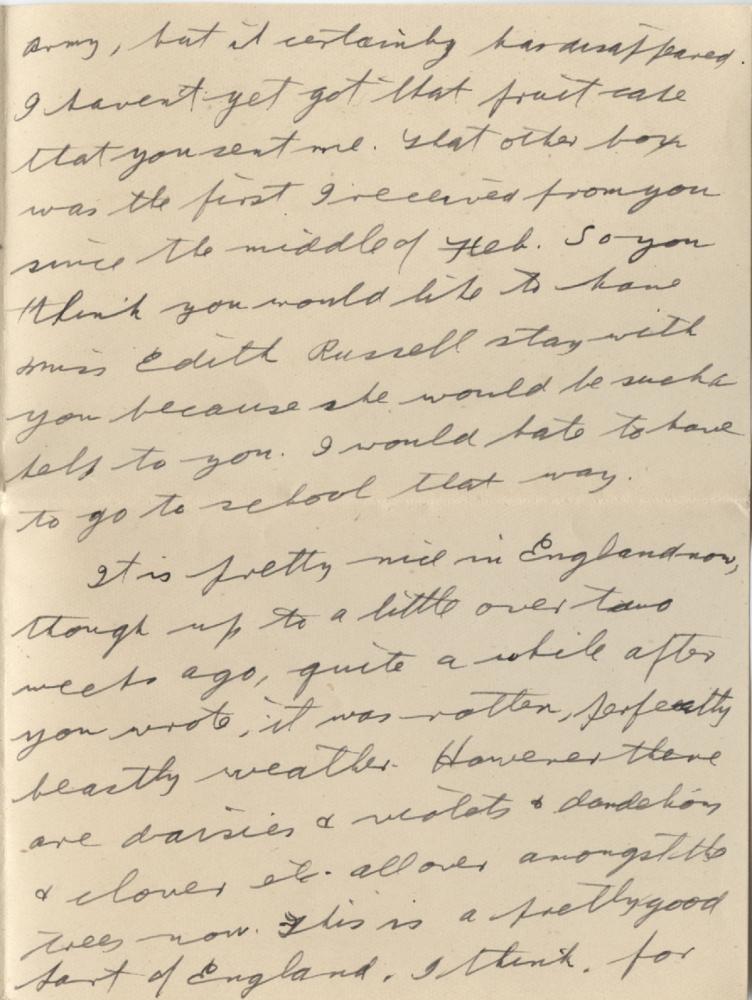 army, but it certainly has disappeared.
I haven't yet got that fruit cake
that you sent me. That other box
was the first I received from you
since the middle of Feb. So you
think you would like to have
Miss Edith Russell stay with
you because she would be such a
help to you. I would hate to have
to go to school that way.
It is pretty nice in England now,
though up to a little over two
weeks ago, quite a while after
you wrote, it was rotten, perfectly
beastly weather. However there
are daisies & violets & dandelions
& clover etc. all over amongst the
trees now. This is a pretty good
part of England, I think, for